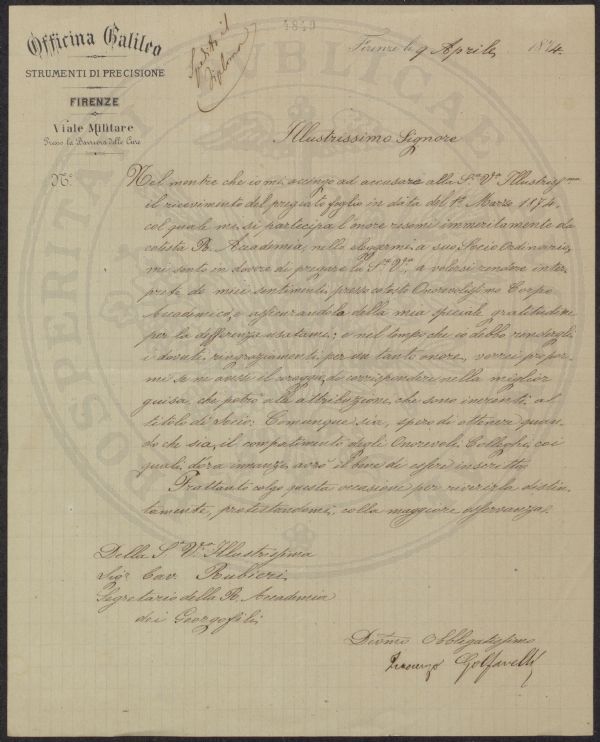 4840
Officina Galileo
STRUMENTI DI PRECISIONE
FIRENZE
Viale Militare
Presso la Barriera delle Cure
Nº
Spedito il
Diploma
Firenze li 9 Aprile 1874.
Illustrissimo Signore
Nel mentre che io mi accingo ad accusare alla S.a V.a Illustriss.ma
il ricevimento del pregiato foglio in data del 1º Marzo 1874,
col quale mi si partecipa l'onore resomi immeritamente da
cotesta R. Accademia, nello eleggermi a suo Socio Ordinario,
mi sento in dovere di pregare la S.a V.a a volersi rendere inter-
prete de' miei sentimenti presso cotesto Onorevolissimo Corpo
Accademico, e assicurandola della mia speciale gratitudine
per la differenza usatami; e nel tempo che io debbo rendergli
i dovuti ringraziamenti per un tanto onore, vorrei propor-
mi se ne avessi il coraggio, di corrispondere nella miglior
guisa, che potrò alle attribuzioni, che sono inerenti al
titolo di Socio: Comunque sia, spero di ottenere quan-
do che sia, il compatimento degli Onorevoli Colleghi, coi
quali d'ora innanzi avrò il bene di essere inscritto.
Frattanto colgo questa occasione per riverirla distin-
tamente, protestandomi, colla maggiore osservanza.
Della S.a V.a Illustrissima
Sig.r Cav. Rubieri
Segretario della R. Accademia
dei Georgofili
Dev.mo Obbligatissimo
Golfarelli
PROSPERITATI PUBLICAE